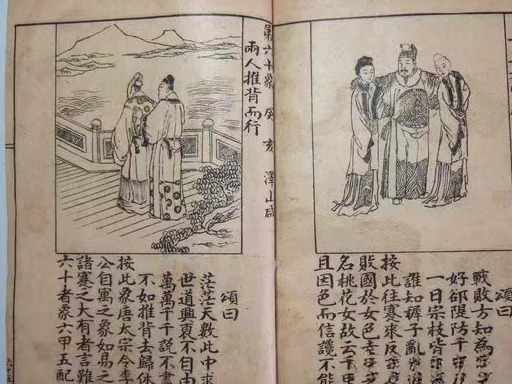 頌曰
戰敗方知為
好郎隄防千
一日宗枝皆
誰知褲子亂
按此往賽來反
敗國於女色
名桃花女故云千
且因色而信讒不能
第六十象 癸亥 澤山咸
兩人推背而行
頌曰
茫茫天數此中求
世道興衰不自由
萬萬千千說不盡
不如推背去歸休
按此象唐太宗令李
公自寓之象如易之
諸賽之大有者言雖
六十者象六甲五配